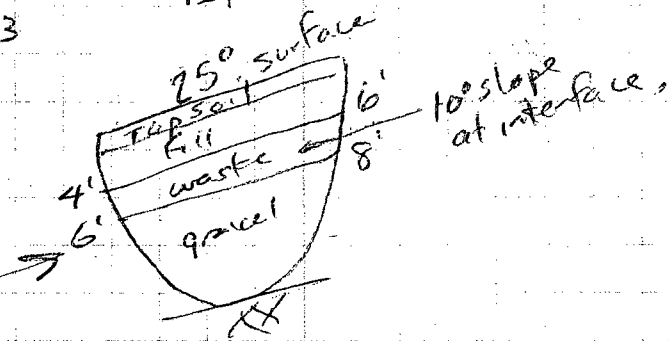 3
25° surface
Topsoil
fill
waste
gravel
4'
6'
6'
8'
10° slope
at interface.
XX